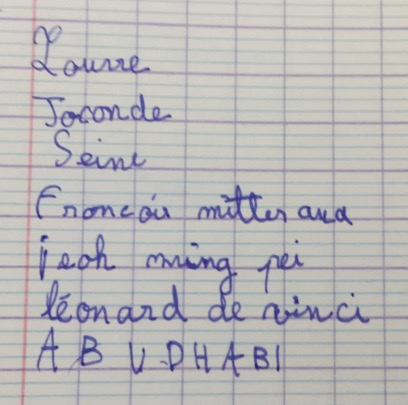 Louvre
Joconde
Seine
François mitterand
ieoh ming pei
léonard de vinci
ABUDHABI